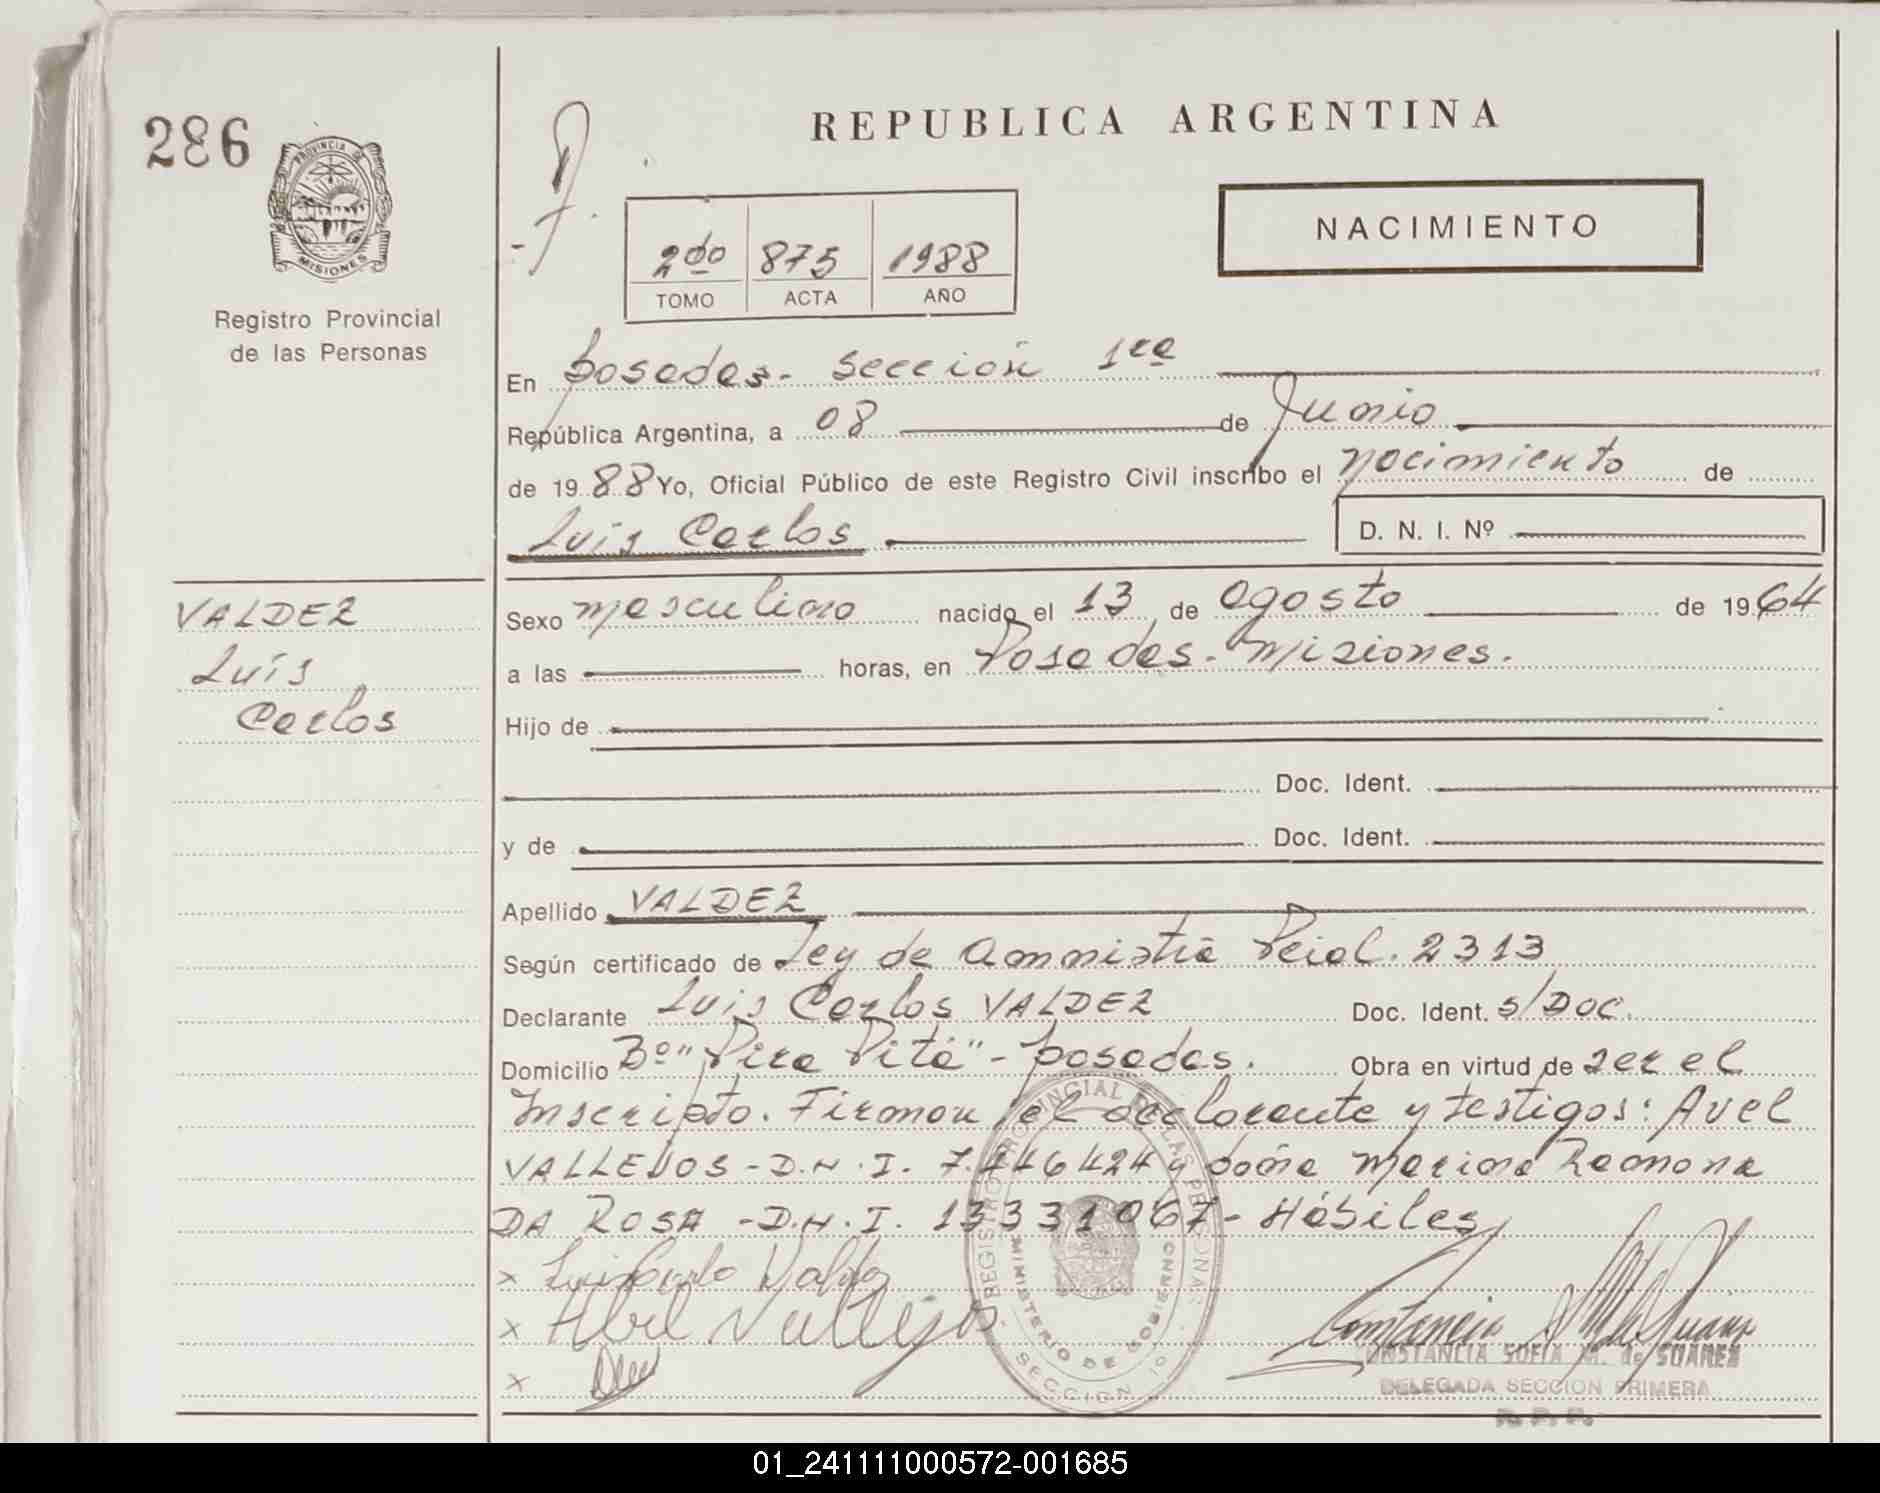 286
PROVINCIA DE
MISIONES
Registro Provincial
de las Personas
REPUBLICA ARGENTINA
NACIMIENTO
2do 875 1988
TOMO ACTA AÑO
En Posadas - Sección 1ra
República Argentina, a 08 de Junio
de 1988 Yo, Oficial Público de este Registro Civil inscribo el nacimiento de
Luis Carlos D. N. I. Nº
VALDEZ
Luis
Carlos
Sexo masculino nacido el 13 de agosto de 1964
a las horas, en Posadas - Misiones.
Hijo de
Doc. Ident.
y de Doc. Ident.
Apellido VALDEZ
Según certificado de Ley de Amnistia Pcial. 2313
Declarante Luis Carlos VALDEZ Doc. Ident. s/Doc.
Domicilio Bº "Pira Pitá" - Posadas. Obra en virtud de ser el
Inscripto. Firman el declarante y testigos: Avel
VALLEJOS - D.N.I. 7.446424 y doña Marina Ramona
DA ROSA - D.N.I. 13331067 - Hábiles
x Luis Carlo Valdez
x Abel Vallejos
x
REGISTRO PROVINCIAL DE LAS PERSONAS
MINISTERIO DE GOBIERNO
SECCION 1º
CONSTANCIA SOFIA M. de SUAREZ
DELEGADA SECCION PRIMERA
R. P. P.
01_241111000572-001685